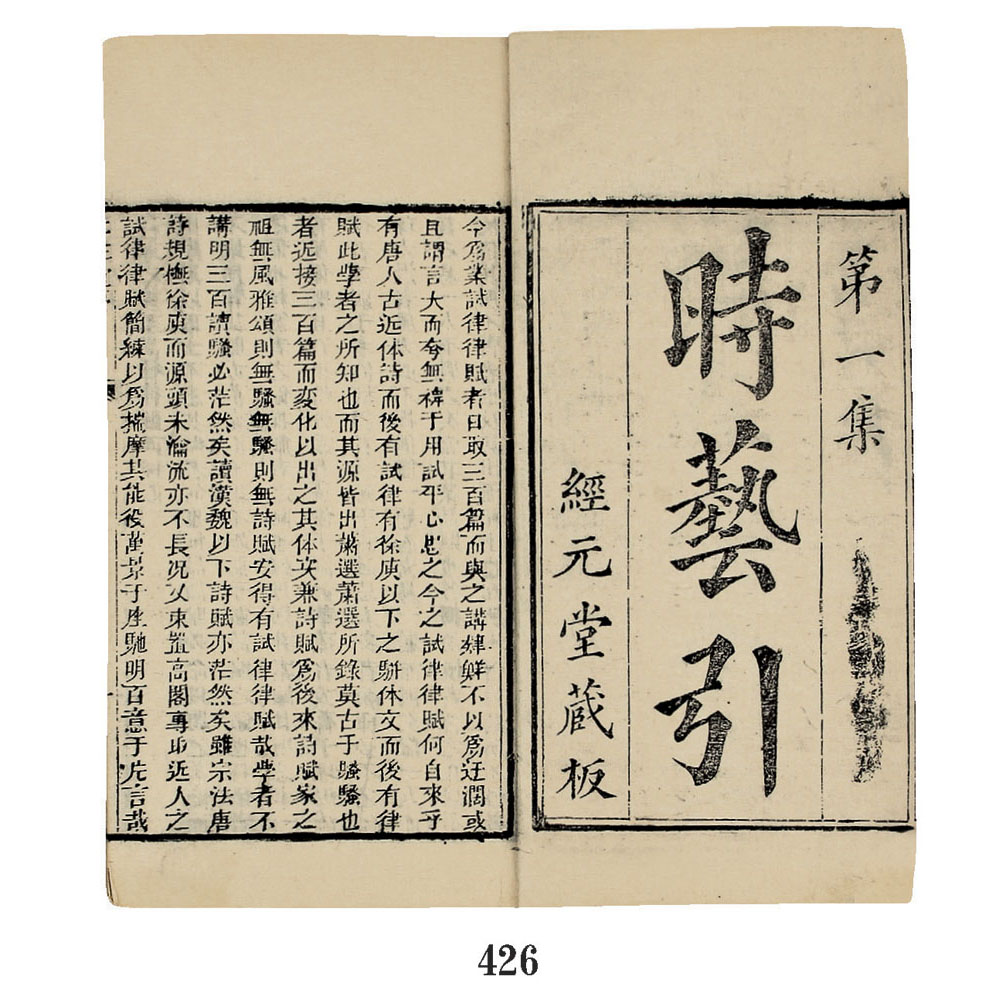 第一集
時藝引
經元堂蔵板
今爲業試律律賦者日取三百篇而與之講肄鮮不以爲迂濶或
且謂言大而夸無裨于用試平心思之今之試律律賦何自來乎
有唐人古近体詩而後有試律有徐庾以下之駢体文而後有律
賦此學者之所知也而其源皆出蕭選蕭選所錄莫古于騷騷也
者近接三百篇而変化以出之其体实兼詩賦爲後來詩賦家之
祖無風雅頌則無騷無騷則無詩賦安得有試律律賦哉學者不
講明三百讀騷必茫然矣讀漢魏以下詩賦亦茫然矣雖宗法唐
詩規橅徐庾而源頭未瀹流亦不長况乆束置高閣專取近人之
試律律賦簡練以爲揣摩其能役萬景于座馳明百意于片言哉
426